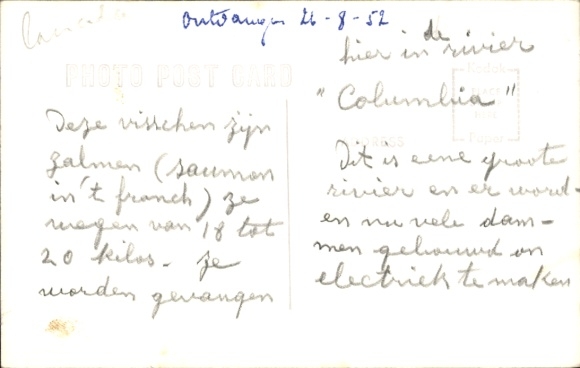 Canada
Ontvangen 26-8-52
PHOTO POST CARD
Deze visschen zijn
zalmen (saumon
in't fransch) ze
wegen van 18 tot
20 kilos. ze
worden gevangen
hier in de rivier
"Columbia"
Kodak
Paper
ADDRESS
Dit is eene groote
rivier en er word-
en nu vele dam-
men gebouwd om
electriek te maken